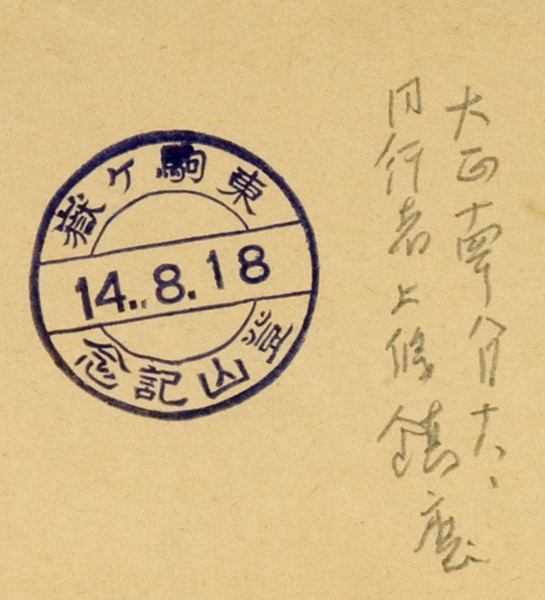 東駒ケ嶽
14.8.18
登山記念
大正十四年八月十八
同行者上條